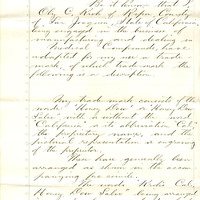 Be it known, that I,
O. Kirk of Ripon County
of San Joaquin, State of California,
being engaged in the business of
manufacturing and dealing in
Medical Compounds, have
adopted for my use a trade
mark, of which trade mark the
following is a description
My trade mark consists of the
words "Honey Dew" or "Honey Dew
Salve" with or without the word
"California" or its abbreviation "Cal."
the proprietary name, and the
pictorial representation or engraving
of the proprietor.
These have generally been
arranged as shown in the accom-
panying fac simile.
The words Kirk's Cal.
Honey Dew Salve" being arranged